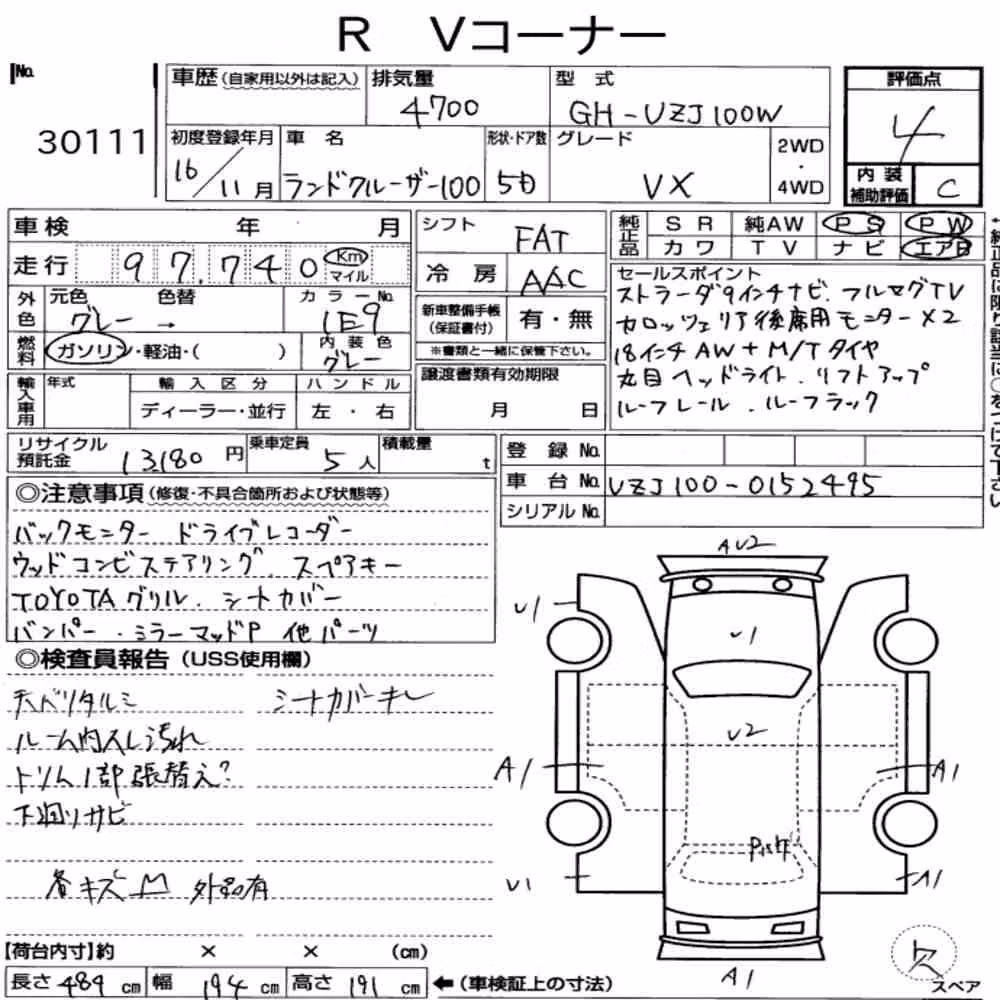 R Vコーナー
No.
30111
車歴(自家用以外は記入)
排気量
4700
型 式
GH-UZJ100W
評価点
4
内 装
補助評価
C
初度登録年月
16/11月
車 名
ランドクルーザー100
形状・ドア数
5D
グレード
VX
2WD
・
4WD
車検 年 月
走行 97,740 Km
マイル
シフト
FAT
冷 房
AAC
純正品 SR 純AW PS PW
カワ TV ナビ エアB
外色 元色 色替 カラーNo.
グレー → 1E9
燃料 ガソリン・軽油・( )
内 装 色
グレー
新車整備手帳
(保証書付)
有・無
※書類と一緒に保管下さい。
譲渡書類有効期限
月 日
セールスポイント
ストラーダ9インチナビ.フルセグTV
カロッツェリア後席用モニター×2
18インチAW+M/Tタイヤ
丸目ヘッドライト.リフトアップ
ルーフレール.ルーフラック
輸入車用 年式 輸入区分 ハンドル
ディーラー・並行 左・右
リサイクル
預託金
13,180 円
乗車定員
5 人
積載量
t
登 録 No.
車 台 No. UZJ100-0152495
シリアル No.
◎注意事項(修復・不具合箇所および状態等)
バックモニター ドライブレコーダー
ウッドコンビステアリング.スペアキー
TOYOTAグリル.シートカバー
バンパー・ミラーマッドP 他パーツ
◎検査員報告(USS使用欄)
天バリタルミ シートカバーキレ
ルーム内スレ汚れ
トリム1部張替え?
下廻りサビ
キズ 外品有
AU2
U1
U1
U2
A1
A1
U1
A1
A1
欠
スペア
【荷台内寸】約 × × (cm)
長さ 489 cm 幅 194 cm 高さ 191 cm
←(車検証上の寸法)